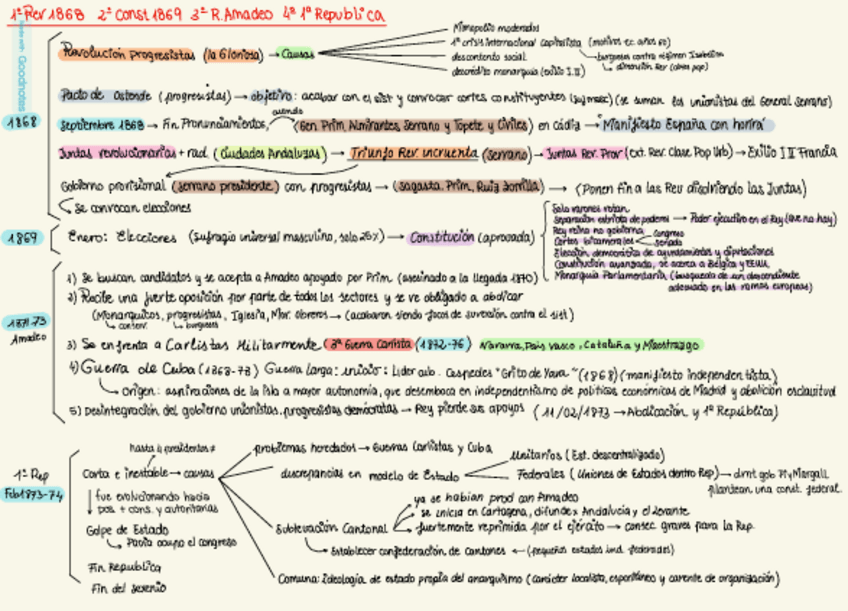 1ª Rev 1868 2ª Const 1869 3ª R. Amadeo 4ª 1ª Republica
Made with Goodnotes
Revolución Progresistas (la Gloriosa) → Causas
Monopolio moderados
1ª crisis internacional capitalista (motivos ec. años 60)
burgueses contra régimen Isabelino
descontento social
descrédito monarquía (exilio I.II)
1868
Pacto de Ostende (progresistas) → objetivo: acabar con el sist y convocar cortes constituyentes (suf masc) (se suman los unionistas del General Serrano)
Septiembre 1868 → Fin Pronunciamientos, cuando (Gen. Prim, Almirantes Serrano y Topete y Civiles) en Cádiz → Manifiesto España con honra
Juntas revolucionarias + rad. (ciudades Andaluzas) → Triunfo Rev. incruenta (Serrano) → Juntas Rev. Prov (ext. Rev. Clase Pop Urb) → Exilio I II Francia
Gobierno provisional (Serrano presidente) con progresistas → (Sagasta, Prim, Ruiz Zorrilla) → (Ponen fin a las Rev disolviendo las Juntas)
Se convocan elecciones
1869
Enero: Elecciones (sufragio universal masculino, solo 25%) → Constitución (aprovada)
Solo varones votan
Separación estricta de poderes → Poder ejecutivo en el Rey (que no hay)
Rey reina no gobierna
Cortes bicamerales
congreso
senado
Elección democrática de ayuntamientos y diputaciones
Constitución avanzada, se acerca a Bélgica y EEUU
Monarquía Parlamentaria (busqueda de un descendiente
adecuado en las ramas europeas)
1871-73
Amadeo
1) Se buscan candidatos y se acepta a Amadeo apoyado por Prim (asesinado a la llegada 1870)
2) Recibe una fuerte oposición por parte de todos los sectores y se ve obligado a abdicar
(Monarquicos, progresistas, Iglesia, Mov. obreros → (acabaran siendo focos de suversión contra el sist)
conserv.
burgueses
3) Se enfrenta a Carlistas Militarmente (3ª Guerra Carlista) (1872-76) Navarra, País Vasco, Cataluña y Maestrazgo
4) Guerra de Cuba (1868-78) Guerra larga: inicio: Lider Céspedes "Grito de Yara" (1868) (manifiesto independentista)
Origen: aspiraciones de la isla a mayor autonomía, que desemboca en independentismo de políticas económicas de Madrid y abolición esclavitud
5) Desintegración del gobierno unionistas, progresistas demócratas → Rey pierde sus apoyos (11/02/1973 → Abdicación y 1ª República)
1ª Rep
Feb 1873-74
hasta 4 presidentes ≠
Corta e inestable → causas
fue evolucionando hacia
pos + cons. y autoritarias
Golpe de Estado
Pavía ocupo el congreso
Fin República
Fin del sexenio
problemas heredados → Guerras Carlistas y Cuba
discrepancias en modelo de Estado
Unitarios (Est. descentralizado)
Federales (Uniones de Estados dentro Rep) → gob Pi y Margall
plantean una const. federal.
Sublevación Cantonal
ya se habían prod con Amadeo
se inicia en Cartagena, difunde x Andalucía y el Levante
fuertemente reprimida por el ejército → consec graves para la Rep
Establecer confederación de cantones ← (pequeños estados ind. federados)
Comuna: ideología de estado propia del anarquismo (carácter localista, espontáneo y carente de organización)